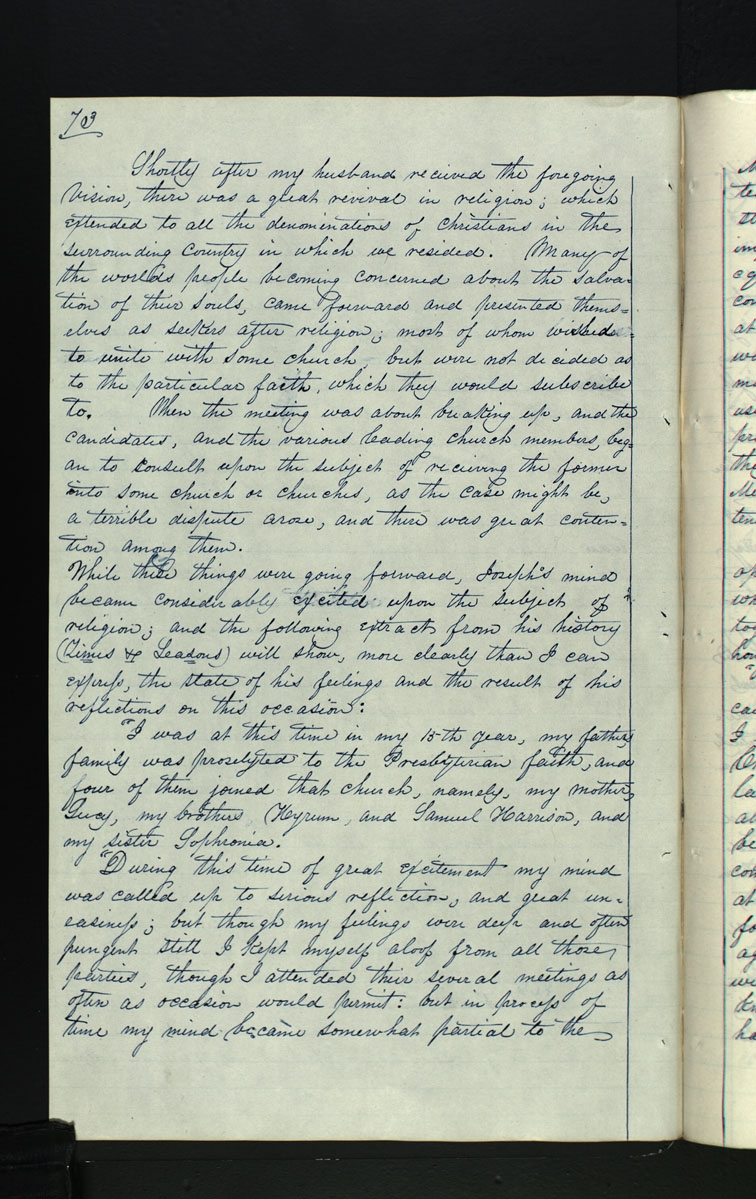 73
Shortly after my husband recieved the foregoing
Vision, there was a great revival in religion; which
extended to all the denominations of Christians in the
surrounding Country in which we resided. Many of
the worlds people becoming concerned about the salva=
tion of their souls, came forward and presented thems=
elves as seekers after religion; most of whom wished
to unite with some church, but were not decided as
to the particular faith, which they would subscribe
to. When the meeting was about breaking up, and the
candidates, and the various leading church members, beg=
an to consult upon the subject of recieving the former
into some church or churches, as the case might be,
a terrible dispute arose, and there was great conten=
tion among them.
While these things were going forward, Joseph's mind
became considerably excited upon the subject of
religion; and the following extract from his history
(Times & Seasons) will show, more clearly than I can
express, the state of his feelings and the result of his
reflections on this occasion:
"I was at this time in my 15th year, my fathers
family was proselyted to the Presbyterian faith, and
four of them joined that church, namely, my mother,
Lucy, my brothers Hyrum, and Samuel Harrison, and
my sister Sophronia.
"During this time of great excitement my mind
was called up to serious reflection, and great un=
easiness; but though my feelings were deep and often
pungent still I kept myself aloof from all those
parties, though I attended their several meetings as
often as occasion would permit: but in process of
time my mind became somewhat partial to the